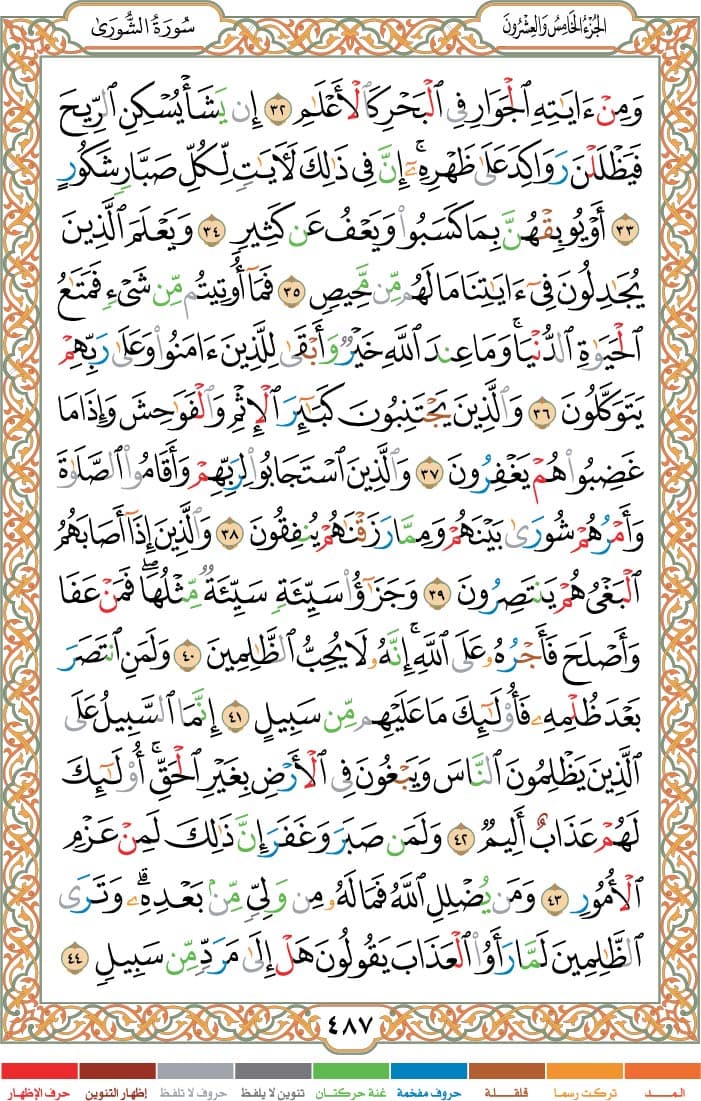 الجُزْءُ الخَامِسُ وَالعِشْرُونَ
سُورَةُ الشُّورَىٰ
وَمِنْ ءَايَٰتِهِ ٱلْجَوَارِ فِى ٱلْبَحْرِ كَٱلْأَعْلَٰمِ ٣٢ إِن يَشَأْ يُسْكِنِ ٱلرِّيحَ
فَيَظْلَلْنَ رَوَاكِدَ عَلَىٰ ظَهْرِهِۦٓ ۚ إِنَّ فِى ذَٰلِكَ لَءَايَٰتٍ لِّكُلِّ صَبَّارٍ شَكُورٍ
٣٣ أَوْ يُوبِقْهُنَّ بِمَا كَسَبُوا۟ وَيَعْفُ عَن كَثِيرٍ ٣٤ وَيَعْلَمَ ٱلَّذِينَ
يُجَٰدِلُونَ فِىٓ ءَايَٰتِنَا مَا لَهُم مِّن مَّحِيصٍ ٣٥ فَمَآ أُوتِيتُم مِّن شَىْءٍ فَمَتَٰعُ
ٱلْحَيَوٰةِ ٱلدُّنْيَا ۖ وَمَا عِندَ ٱللَّهِ خَيْرٌ وَأَبْقَىٰ لِلَّذِينَ ءَامَنُوا۟ وَعَلَىٰ رَبِّهِمْ
يَتَوَكَّلُونَ ٣٦ وَٱلَّذِينَ يَجْتَنِبُونَ كَبَٰٓئِرَ ٱلْإِثْمِ وَٱلْفَوَٰحِشَ وَإِذَا مَا
غَضِبُوا۟ هُمْ يَغْفِرُونَ ٣٧ وَٱلَّذِينَ ٱسْتَجَابُوا۟ لِرَبِّهِمْ وَأَقَامُوا۟ ٱلصَّلَوٰةَ
وَأَمْرُهُمْ شُورَىٰ بَيْنَهُمْ وَمِمَّا رَزَقْنَٰهُمْ يُنفِقُونَ ٣٨ وَٱلَّذِينَ إِذَآ أَصَابَهُمُ
ٱلْبَغْىُ هُمْ يَنتَصِرُونَ ٣٩ وَجَزَٰٓؤُا۟ سَيِّئَةٍ سَيِّئَةٌ مِّثْلُهَا ۖ فَمَنْ عَفَا
وَأَصْلَحَ فَأَجْرُهُۥ عَلَى ٱللَّهِ ۚ إِنَّهُۥ لَا يُحِبُّ ٱلظَّٰلِمِينَ ٤٠ وَلَمَنِ ٱنتَصَرَ
بَعْدَ ظُلْمِهِۦ فَأُو۟لَٰٓئِكَ مَا عَلَيْهِم مِّن سَبِيلٍ ٤١ إِنَّمَا ٱلسَّبِيلُ عَلَى
ٱلَّذِينَ يَظْلِمُونَ ٱلنَّاسَ وَيَبْغُونَ فِى ٱلْأَرْضِ بِغَيْرِ ٱلْحَقِّ ۚ أُو۟لَٰٓئِكَ
لَهُمْ عَذَابٌ أَلِيمٌ ٤٢ وَلَمَن صَبَرَ وَغَفَرَ إِنَّ ذَٰلِكَ لَمِنْ عَزْمِ
ٱلْأُمُورِ ٤٣ وَمَن يُضْلِلِ ٱللَّهُ فَمَا لَهُۥ مِن وَلِىٍّ مِّنۢ بَعْدِهِۦ ۗ وَتَرَى
ٱلظَّٰلِمِينَ لَمَّا رَأَوُا۟ ٱلْعَذَابَ يَقُولُونَ هَلْ إِلَىٰ مَرَدٍّ مِّن سَبِيلٍ ٤٤
٤٨٧
المـــد
تركت رسما
قلقـلة
حروف مفخمة
غنة حركتان
تنوين لا يلفظ
حروف لا تلفظ
إظهار التنوين
حرف الإظهار